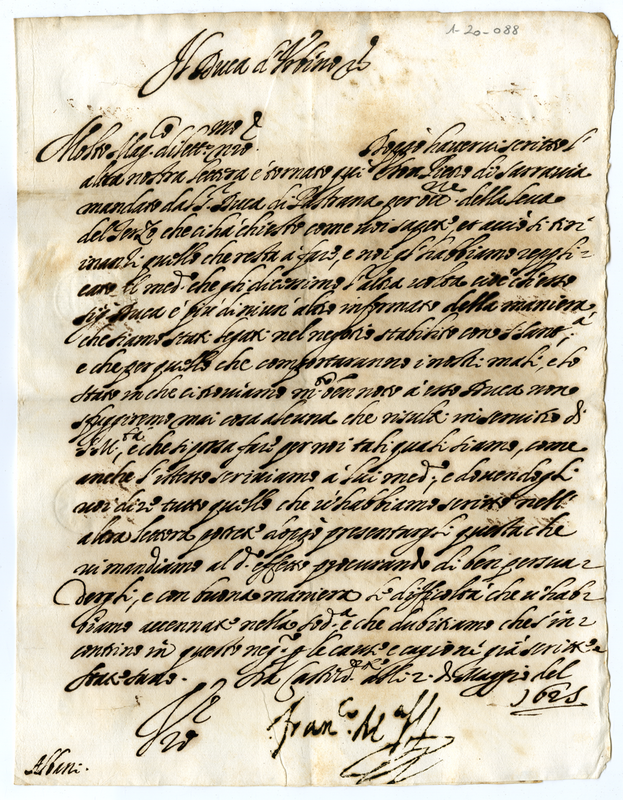 1-20-088
Il Duca d'Urbino
Molto Mag.co di lett.mo nro. Doppò havervi scritto l'
altra nostra lettera è tornato quì Don Piero di Sarravia
mandato dal S.r Duca di Pastrana per della leva
del Terzo che ci hà chiesto come voi sapete, et
inanti quello che resta à fare, e noi gl'habbiamo repli-
cato il med.o che gli dicessimo l'altra volta cioè ch'esso
Sig.r Duca è più di niun' altro informato della maniera
che siamo stati legati nel negotio stabilito con
e che per quello che comportaranno i nostri mali, e lo
stato in che ci troviamo noto à esso Duca non
sfuggiremo mai cosa alcuna che risulti in servitio di
S. M.tà, e che si possa fare per noi tali quali siamo, come
anche l'istesso scriviamo à lui med.o, e dovendogli
voi dire tutto quello che v'habbiamo scritto nell'
altra lettera potrete doppò presentargli questa che
vi mandiamo al d.o effetto procurando di ben persua-
dergli, e con buona maniera le difficoltà che v'hab-
biamo accennate nella sod.a e che dubitiamo che s'in-
contrino in questo neg.o p le cause, e cagioni già scritte
state sano. Da Castel d. alli 2. di Maggio del
1625
Fran.co M.a
Albani.